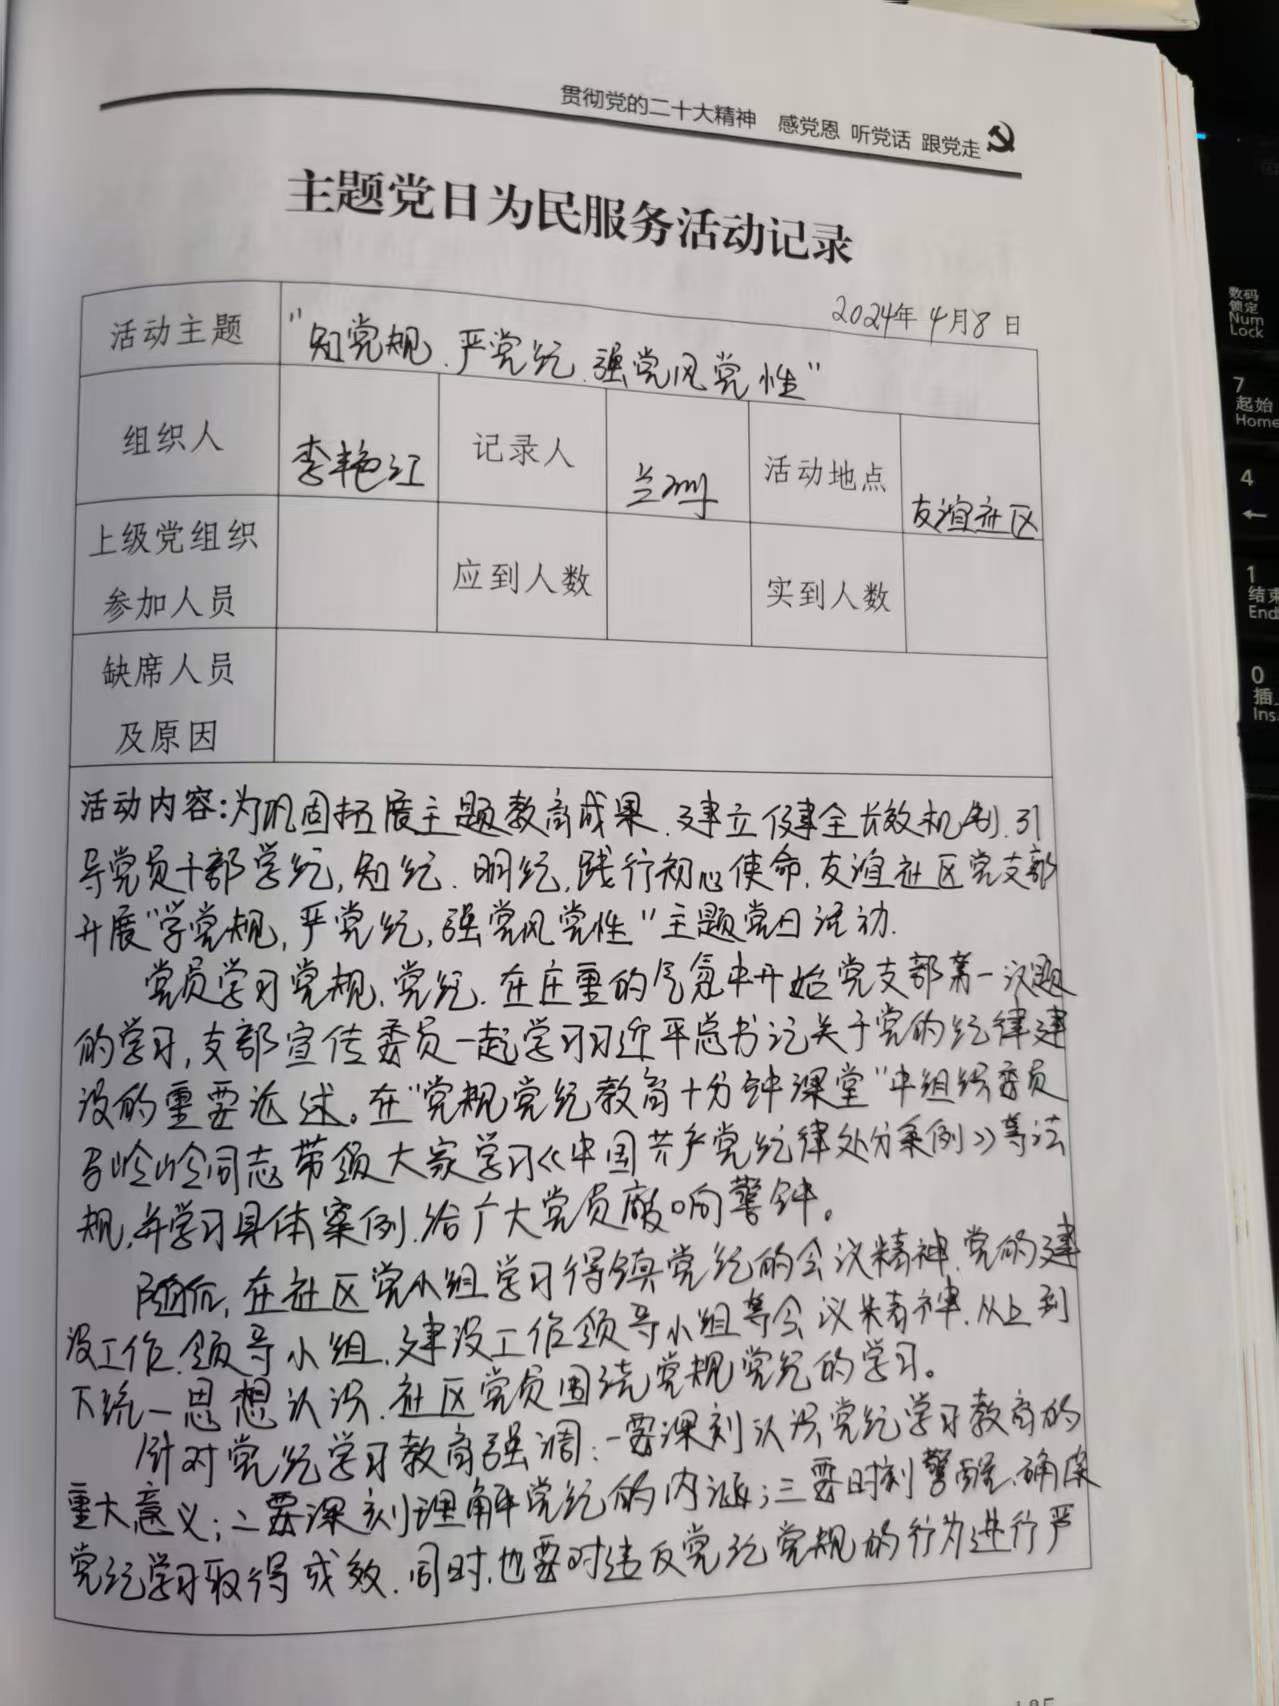 贯彻党的二十大精神 感党恩 听党话 跟党走
主题党日为民服务活动记录
2024年4月8日
活动主题 "知党规、严党纪、强党风党性"
组织人 李艳江 记录人 活动地点 友谊社区
上级党组织
参加人员 应到人数 实到人数
缺席人员
及原因
活动内容:为巩固拓展主题教育成果、建立健全长效机制、引
导党员干部学纪,知纪、明纪,践行初心使命,友谊社区党支部
开展"学党规,严党纪,强党风党性"主题党日活动.
党员学习党规、党纪.在庄重的气氛中开始党支部第一议题
的学习,支部宣传委员一起学习习近平总书记关于党的纪律建
设的重要论述。在"党规党纪教育十分钟课堂"中组织委员
岭岭同志带领大家学习《中国共产党纪律处分案例》等法
规,并学习具体案例.给广大党员敲响警钟。
随后,在社区党小组学习得镇党纪的会议精神、党的建
设工作、领导小组、建设工作领导小组等会议精神、从上到
下统一思想认识、社区党员围绕党规党纪的学习。
针对党纪学习教育强调:一要深刻认识党纪学习教育的
重大意义;二要深刻理解党纪的内涵;三要时刻警醒、确保
党纪学习取得成效.同时,也要对违反党纪党规的行为进行严
数码
锁定
Num
Lock
7
起始
Home
4
←
1
结束
End
0
插
Ins